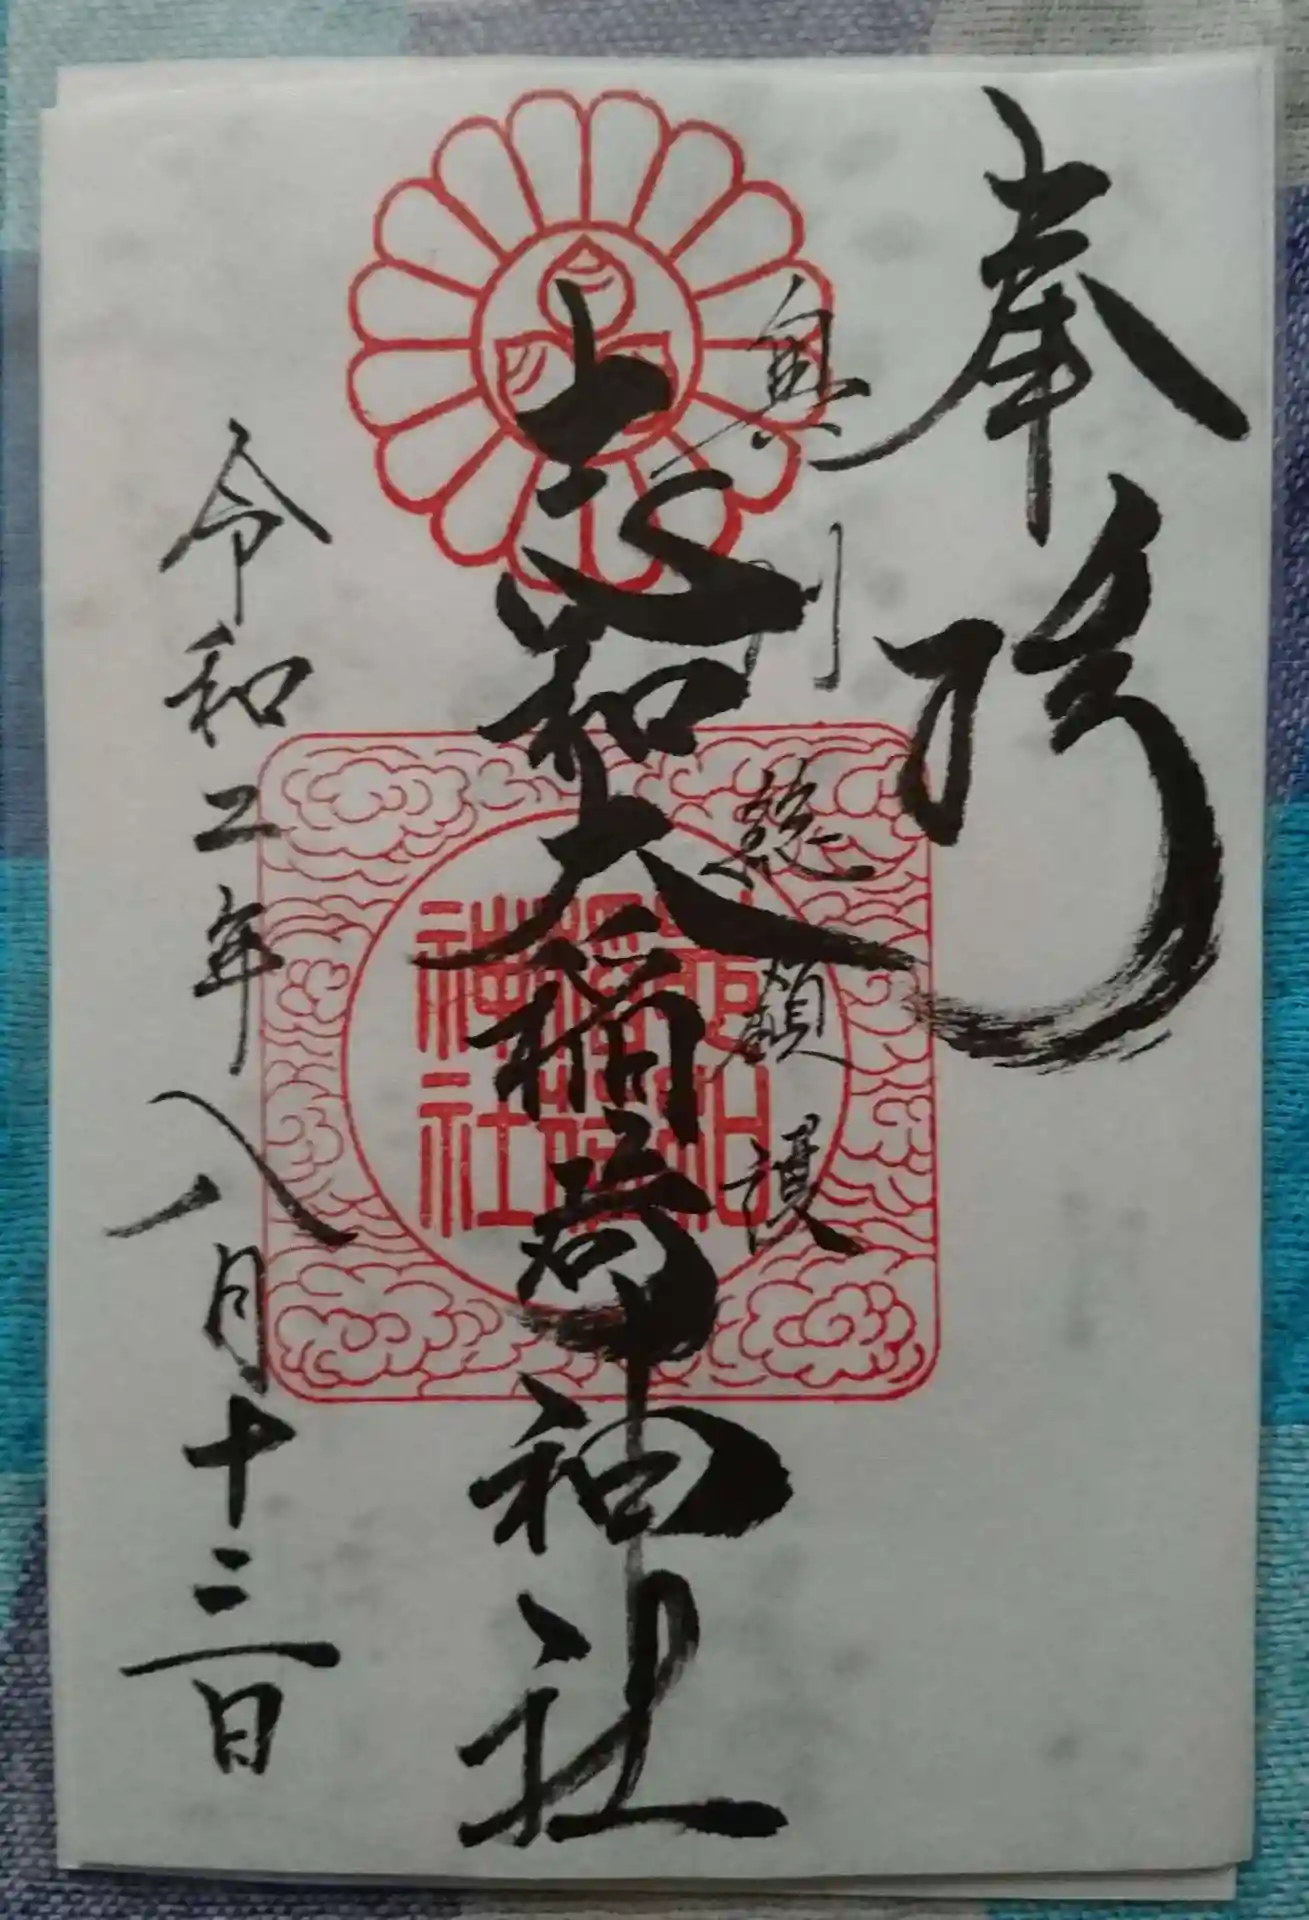 奉拝
奥州総鎮護
志和大稲荷神社
志和
稲荷
神社
令和二年八月十三日